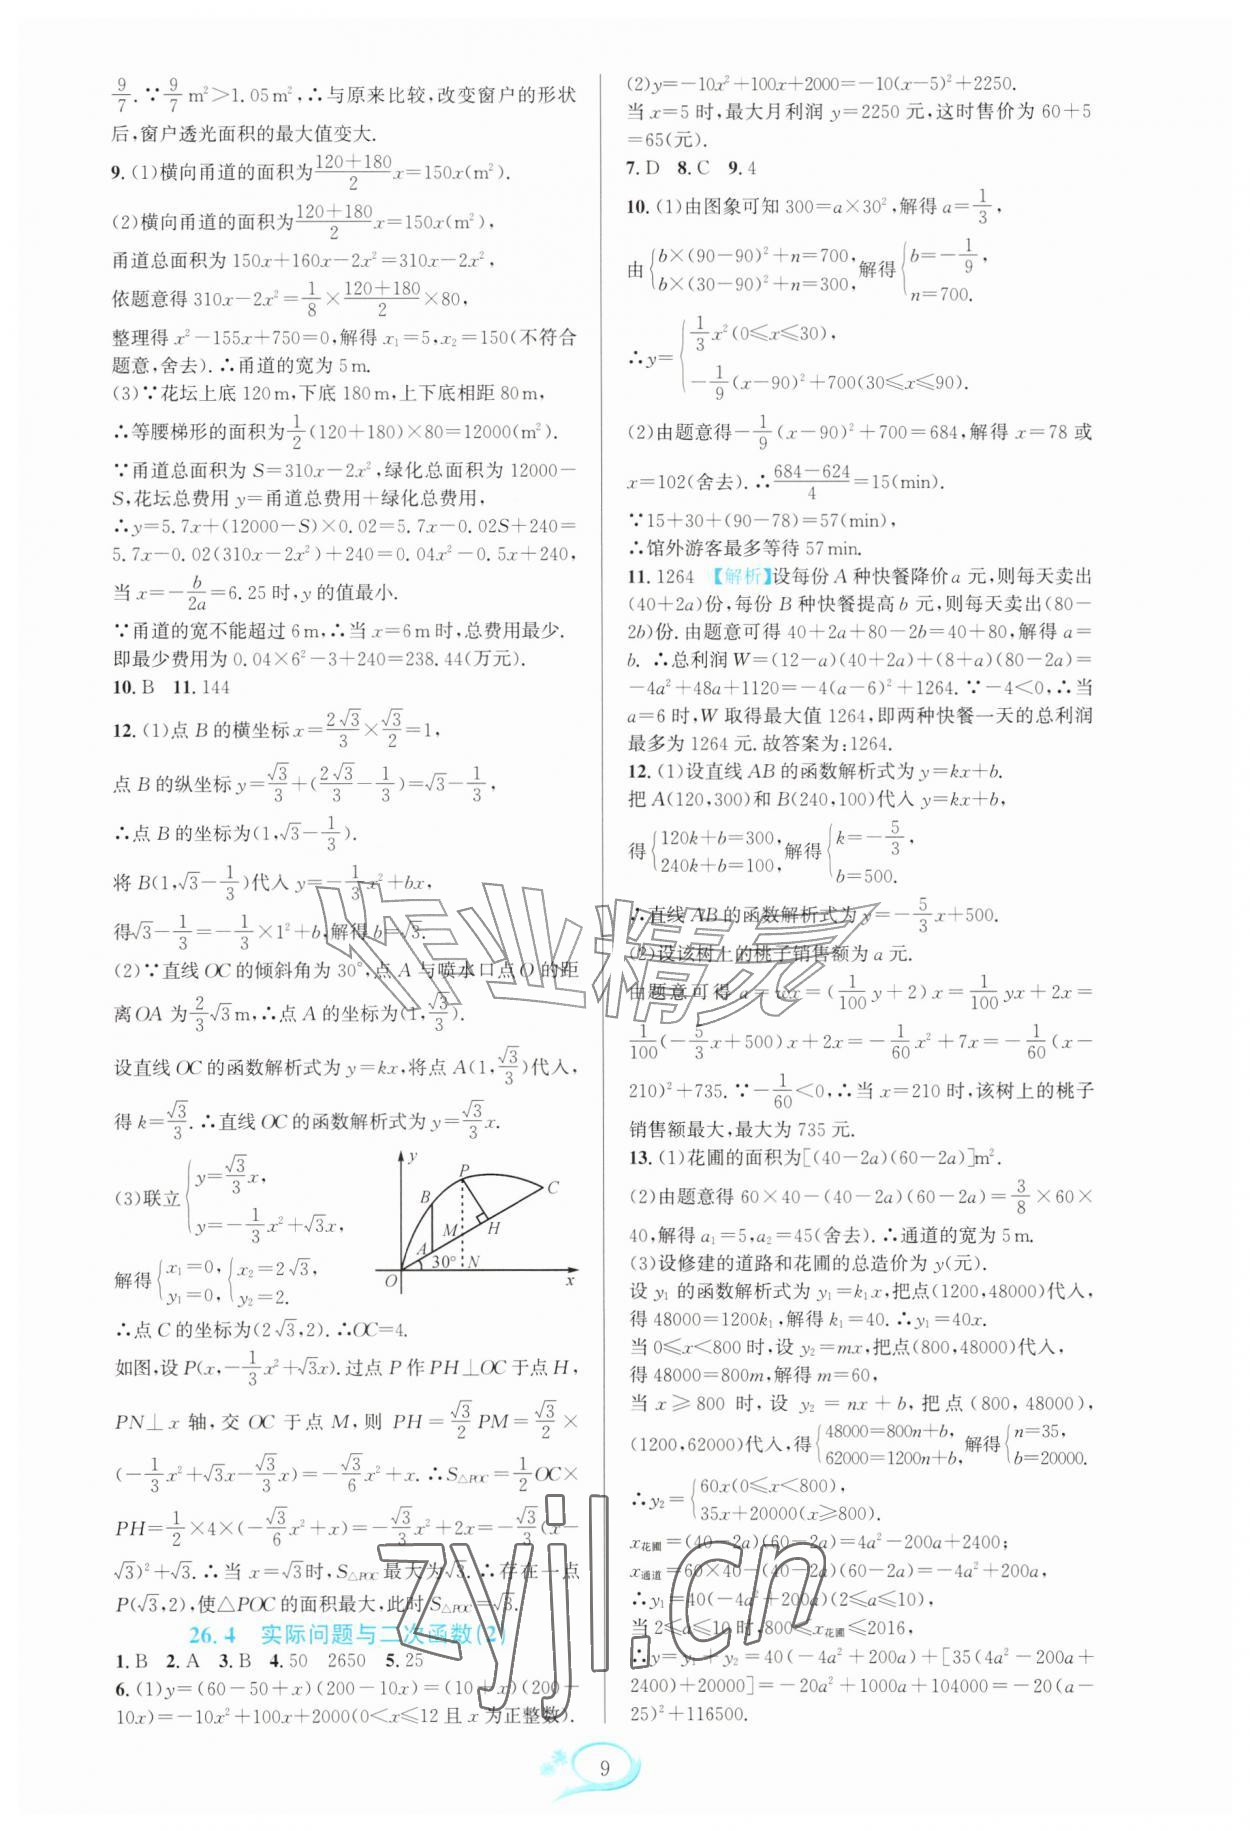 9/7.∵9/7 m²>1.05m²,∴与原来比较,改变窗户的形状
后,窗户透光面积的最大值变大.
9.(1)横向甬道的面积为(120+180)/2 x=150x(m²).
(2)横向甬道的面积为(120+180)/2 x=150x(m²),
甬道总面积为150x+160x-2x²=310x-2x²,
依题意得310x-2x²=1/8×(120+180)/2×80,
整理得x²-155x+750=0,解得x₁=5,x₂=150(不符合
题意,舍去).∴甬道的宽为5m.
(3)∵花坛上底120m,下底180m,上下底相距80m,
∴等腰梯形的面积为1/2(120+180)×80=12000(m²).
∵甬道总面积为S=310x-2x²,绿化总面积为12000-
S,花坛总费用y=甬道总费用+绿化总费用,
∴y=5.7x+(12000-S)×0.02=5.7x-0.02S+240=
5.7x-0.02(310x-2x²)+240=0.04x²-0.5x+240,
当x=-b/2a=6.25时,y的值最小.
∵甬道的宽不能超过6m,∴当x=6m时,总费用最少.
即最少费用为0.04×6²-3+240=238.44(万元).
10.B 11.144
12.(1)点B的横坐标x=2√3/3×√3/2=1,
点B的纵坐标y=√3/3+(2√3/3-1/3)=√3-1/3,
∴点B的坐标为(1,√3-1/3).
将B(1,√3-1/3)代入y=-1/3x²+bx,
得√3-1/3=-1/3×1²+b,解得b=√3.
(2)∵直线OC的倾斜角为30°,点A与喷水口点O的距
离OA为2/3√3m,∴点A的坐标为(1,√3/3).
设直线OC的函数解析式为y=kx,将点A(1,√3/3)代入,
得k=√3/3.∴直线OC的函数解析式为y=√3/3x.
(3)联立{y=√3/3x,
y=-1/3x²+√3x,
解得{x₁=0,
y₁=0,{x₂=2√3,
y₂=2.
y P C B M H A 30° N O x
∴点C的坐标为(2√3,2).∴OC=4.
如图,设P(x,-1/3x²+√3x).过点P作PH⊥OC于点H,
PN⊥x轴,交OC于点M,则PH=√3/2PM=√3/2×
(-1/3x²+√3x-√3/3x)=-√3/6x²+x.∴S△POC=1/2OC×
PH=1/2×4×(-√3/6x²+x)=-√3/3x²+2x=-√3/3(x-
√3)²+√3.∴当x=√3时,S△POC最大为√3.∴存在一点
P(√3,2),使△POC的面积最大,此时S△POC=√3.
26.4 实际问题与二次函数(2)
1.B 2.A 3.B 4.50 2650 5.25
6.(1)y=(60-50+x)(200-10x)=(10+x)(200-
10x)=-10x²+100x+2000(0<x≤12且x为正整数).
(2)y=-10x²+100x+2000=-10(x-5)²+2250.
当x=5时,最大月利润y=2250元,这时售价为60+5
=65(元).
7.D 8.C 9.4
10.(1)由图象可知300=a×30²,解得a=1/3,
由{b×(90-90)²+n=700,
b×(30-90)²+n=300,解得{b=-1/9,
n=700.
∴y={1/3x²(0≤x≤30),
-1/9(x-90)²+700(30≤x≤90).
(2)由题意得-1/9(x-90)²+700=684,解得x=78或
x=102(舍去).∴(684-624)/4=15(min).
∵15+30+(90-78)=57(min),
∴馆外游客最多等待57min.
11.1264 【解析】设每份A种快餐降价a元,则每天卖出
(40+2a)份,每份B种快餐提高b元,则每天卖出(80-
2b)份.由题意可得40+2a+80-2b=40+80,解得a=
b.∴总利润W=(12-a)(40+2a)+(8+a)(80-2a)=
-4a²+48a+1120=-4(a-6)²+1264.∵-4<0,∴当
a=6时,W取得最大值1264,即两种快餐一天的总利润
最多为1264元.故答案为:1264.
12.(1)设直线AB的函数解析式为y=kx+b.
把A(120,300)和B(240,100)代入y=kx+b,
得{120k+b=300,
240k+b=100,解得{k=-5/3,
b=500.
∴直线AB的函数解析式为y=-5/3x+500.
(2)设该树上的桃子销售额为a元.
由题意可得a=wx=(1/100y+2)x=1/100yx+2x=
1/100(-5/3x+500)x+2x=-1/60x²+7x=-1/60(x-
210)²+735.∵-1/60<0,∴当x=210时,该树上的桃子
销售额最大,最大为735元.
13.(1)花圃的面积为[(40-2a)(60-2a)]m².
(2)由题意得60×40-(40-2a)(60-2a)=3/8×60×
40,解得a₁=5,a₂=45(舍去).∴通道的宽为5m.
(3)设修建的道路和花圃的总造价为y(元).
设y₁的函数解析式为y₁=k₁x,把点(1200,48000)代入,
得48000=1200k₁,解得k₁=40.∴y₁=40x.
当0≤x<800时,设y₂=mx,把点(800,48000)代入,
得48000=800m,解得m=60,
当x≥800时,设y₂=nx+b,把点(800,48000),
(1200,62000)代入,得{48000=800n+b,
62000=1200n+b,解得{n=35,
b=20000.
∴y₂={60x(0≤x<800),
35x+20000(x≥800).
x花圃=(40-2a)(60-2a)=4a²-200a+2400;
x通道=60×40-(40-2a)(60-2a)=-4a²+200a,
∴y₁=40(-4a²+200a)(2≤a≤10),
当2≤a≤10,800≤x花圃≤2016,
∴y=y₁+y₂=40(-4a²+200a)+[35(4a²-200a+
2400)+20000]=-20a²+1000a+104000=-20(a-
25)²+116500.
作业精灵
zyjl.cn
9